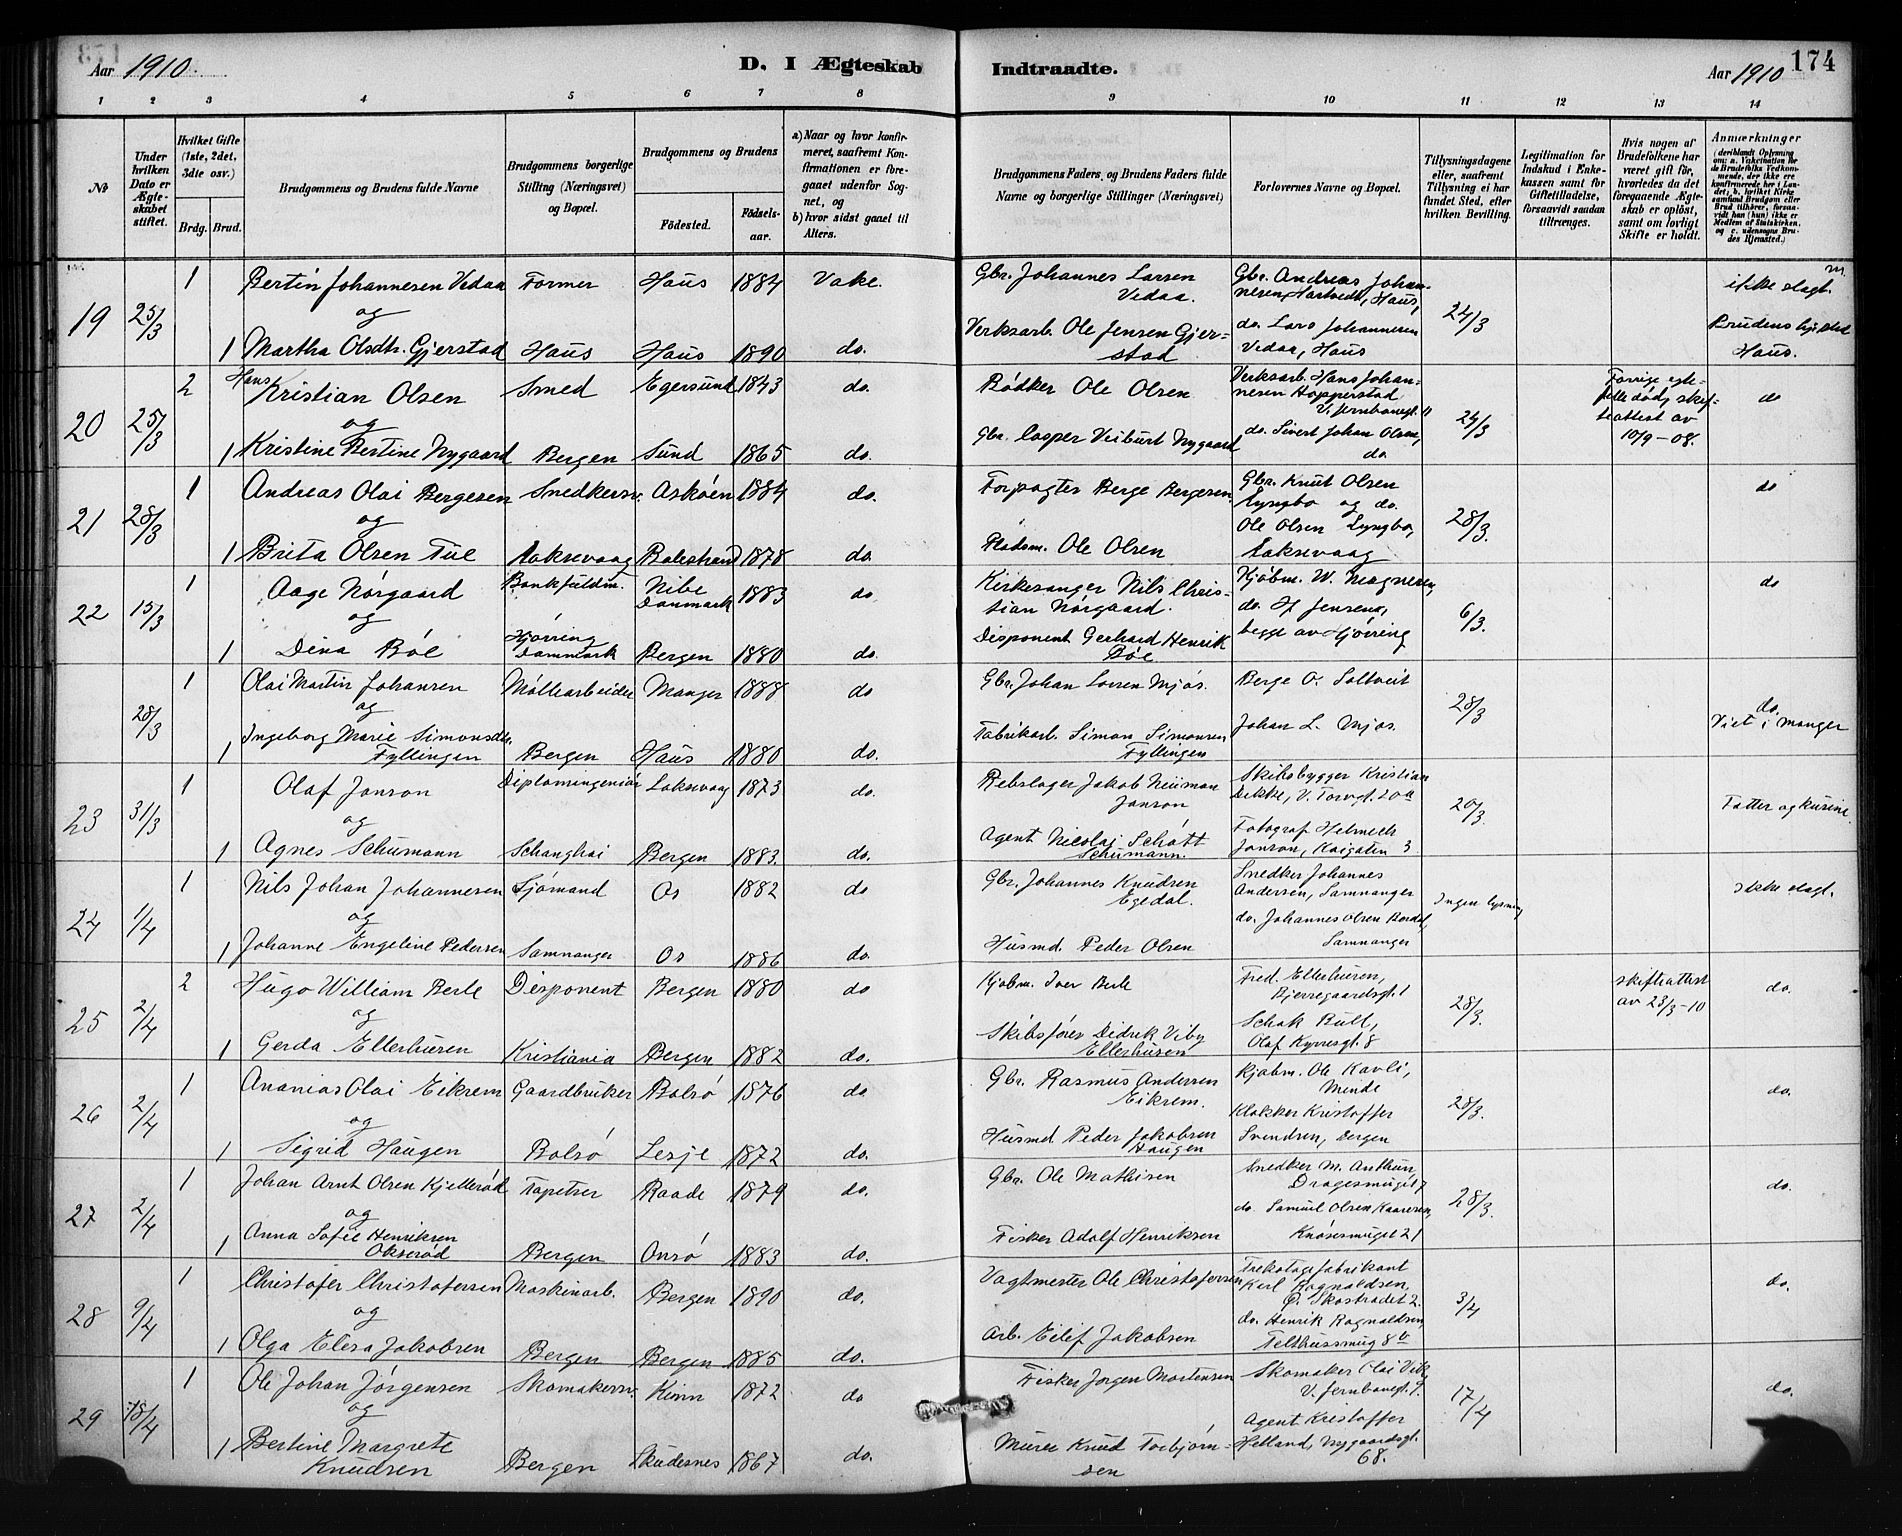 Aar 1910.
D. I Ægteskab
Indtraadte.
174
Aar 1910
1 2 3 4 5 6 7 8 9 10 11 12 13 14
No
Under hvilken Dato er Ægteskabet stiftet.
Hvilket Gifte (1ste, 2det, 3die osv.)
Brdg. Brud.
Brudgommens og Brudens fulde Navne
Brudgommens borgerlige Stilling (Næringsvei) og Bopæl.
Brudgommens og Brudens
Fødested.
Fødselsaar.
a) Naar og hvor konfirmeret, saafremt Konfirmationen er foregaaet udenfor Sognet, og
b) hvor sidst gaaet til Alters.
Brudgommens Faders og Brudens Faders fulde Navne og borgerlige Stillinger (Næringsvei)
Forlovernes Navne og Bopæl.
Tillysningsdagene eller, saafremt Tillysning ei har fundet Sted, efter hvilken Bevilling.
Legitimation for Indskud i Enkekassen samt for Giftetilladelse, forsaavidt saadan tiltrænges.
Hvis nogen af Brudefolkene har været gift før, hvorledes da det foregaaende Ægteskab er opløst, samt om lovligt Skifte er holdt.
Anmærkninger (deriblandt Oplysning om: a. Vakcination for de Brudefolks Vedkommende, der ikke ere konfirmerede her i Landet; b. hvilket Kirkesamfund Brudgom eller Brud tilhører, forsaavidt han (hun) ikke er Medlem af Statskirken, og c. udensogns Brudes Hjemsted.)
19 25/3 1 Bertin Johannesen Vedaa Former Haus 1884 Vake. Gbr. Johannes Larsen Vedaa. Gbr. Andreas Johannesen, Hartvedt, Haus, 24/3 ikke slagt.
og
1 Martha Olsdtr. Gjerstad Haus Haus 1890 do. Verksarb. Ole Jensen Gjerstad do. Lars Johannesen Vedaa, Haus Brudens hjsted Haus.
20 25/3 2 Hans Kristian Olsen Smed Egersund 1843 do. Bødker Ole Olsen Verksarb. Hans Johannesen Hopperstad V. Jernbanegt. 11 24/3 Forrige egtefelle død, skifteattest av 10/9-08. do
og
1 Kristine Bertine Nygaard Bergen Sund 1865 do. Gbr. Casper Veiburt Nygaard do. Sivert Johan Olsen, do.
21 28/3 1 Andreas Olai Bergesen Snedkersv. Askøen 1884 do. Forpagter Berge Bergesen. Gbr. Knut Olsen Lyngbo og do. 28/3. do
og
1 Brita Olsen Tue Laksevaag Balestrand 1878 do. Pladsm. Ole Olsen Ole Olsen Lyngbo, Laksevaag
22 15/3 1 Aage Nørgaard Bankfuldm. Nibe Danmark 1883 do. Kirkesanger Nils Christian Nørgaard. Kjøbm. W. Magnesen, 6/3. do
og
1 Dina Bøe Hjørring Danmark Bergen 1880 do. Disponent Gerhard Henrik Bøe do. H. Jensen, begge av Hjørring
28/3 1 Olai Martin Johansen Møllearbeider Manger 1888 do Gbr. Johan Larsen Mjøs. Berge O. Soltveit 28/3 do. Viet i Manger
og
1 Ingeborg Marie Simonsdtr. Fyllingen Bergen Haus 1880 do. Fabrikarb. Simon Simonsen Fyllingen Johan L. Mjøs.
23 31/3 1 Olaf Janson Diplomingeniør Laksevaag 1873 do. Rebslager Jakob Neuman Janson Skibsbygger Kristian Dekke, V. Torvgt. 20 a 20/3. Fætter og kusine.
og
1 Agnes Schumann Schanghai Bergen 1883. do. Agent Nicolai Schøtt Schumann. Fotograf Helmich Janson, Kaigaten 3
24 1/4 1 Nils Johan Johannesen Sjømand Os 1882 do Gbr. Johannes Knudsen Egedal. Snedker Johannes Andersen, Samnanger Ingen lysning ikke slagt.
og
1 Johanne Engeline Pedersen Samnanger Os 1886 do. Husmd. Peder Olsen do. Johannes Olsen Samnanger
25 2/4 2 Hugo William Berle Disponent Bergen 1880 do Kjøbm. Iver Berle Fred. Ellerhusen, Bjerregaardsgt. 1 28/3. skifteattest av 23/3-10 do.
og
1 Gerda Ellerhusen Kristiania Bergen 1882 do. Skibsfører Didrik Viby Ellerhusen Schak Bull, Olaf Kyrresgt. 8
26 2/4 1 Ananias Olai Eikrem Gaardbruker Bolsø 1876 do Gbr. Rasmus Andersen Eikrem. Kjøbm. Ole Kavli, Minde 28/3. do.
og
1 Sigrid Haugen Bolsø Lesje 1872 do. Husmd Peder Jakobsen Haugen Klokker Kristoffer Svendsen, Bergen
27 2/4 1 Johan Arnt Olsen Kjellerød Tapetser Raade 1879 do. Gbr. Ole Mathisen Snedker M. Anthun, Dragesmuget 7 28/3. do.
og
1 Anna Sofie Henriksen Okserød Bergen Onsø 1883 do. Fisker Adolf Henriksen do. Samuel Olsen Kaaresen, Knøsesmuget 21
28 9/4 1 Christofer Christofersen Maskinarb. Bergen 1890 do. Vagtmester Ole Christofersen Trekotagefabrikant Karl Rognaldsen, Ø. Skostrædet 2. 3/4 do.
og
1 Olga Elesa Jakobsen Bergen Bergen 1885 do. Arb. Eilif Jakobsen do. Henrik Rognaldsen, Telthussmug 8 b
29 18/4 1 Ole Johan Jørgensen Skomakersv. Kinn 1872 do Fisker Jørgen Mortensen Skomaker Olai Vik, V. Jernbanegt. 9. 17/4 do.
og
1 Bertine Margrete Knudsen Bergen Skudesnes 1867 do. Murer Knud Torbjørnsen Agent Kristoffer Helland, Nygaardsgt. 68.